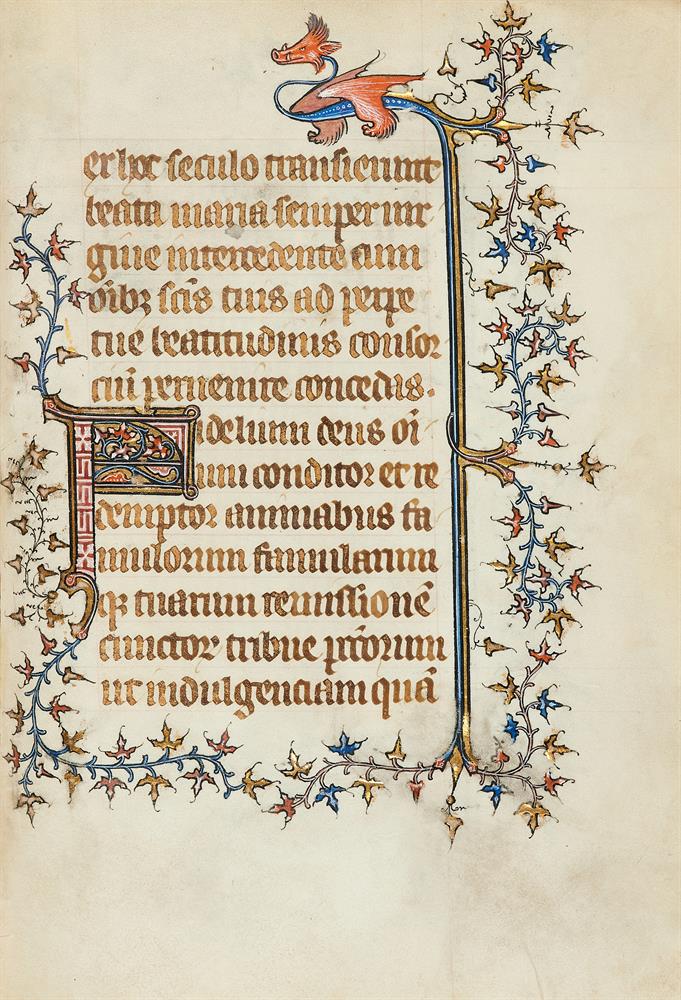 ex hoc seculo transierunt
beata maria semper vir
gine intercedente cum
oībꝫ scīs tuis ad perpe
tue beatitudinis consor
ciū peruenire concedas.
Fidelium deus oī
nium conditor et re
demptor animabus fa
mulorum famularum
qꝫ tuarum remissionē
cunctoꝝ tribue pctōrum
ut indulgenciam quā